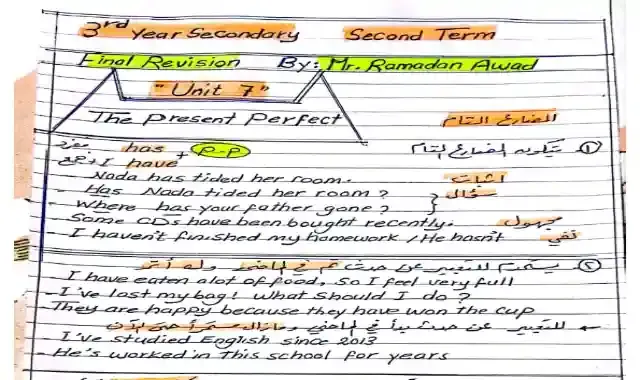 3rd Year Secondary Second Term
Final Revision By: Mr. Ramadan Awad
"Unit 7"
The Present Perfect المضارع التام
① يتكون المضارع التام
مفرد has + P.P
جمع + I have
Nada has tided her room. اثبات
- Has Nada tided her room? سؤال
- Where has your father gone?
- Some CDs have been bought recently. مجهول
- I haven't finished my homework / He hasn't نفي
② يستخدم للتعبير عن حدث تم في الماضي وله أثر
- I have eaten alot of food, so I feel very full
- I've lost my bag! What should I do?
They are happy because they have won the cup
للتعبير عن حدث بدأ في الماضي ومازال مستمراً حتى الآن
- I've studied English since 2013
- He's worked in this school for years